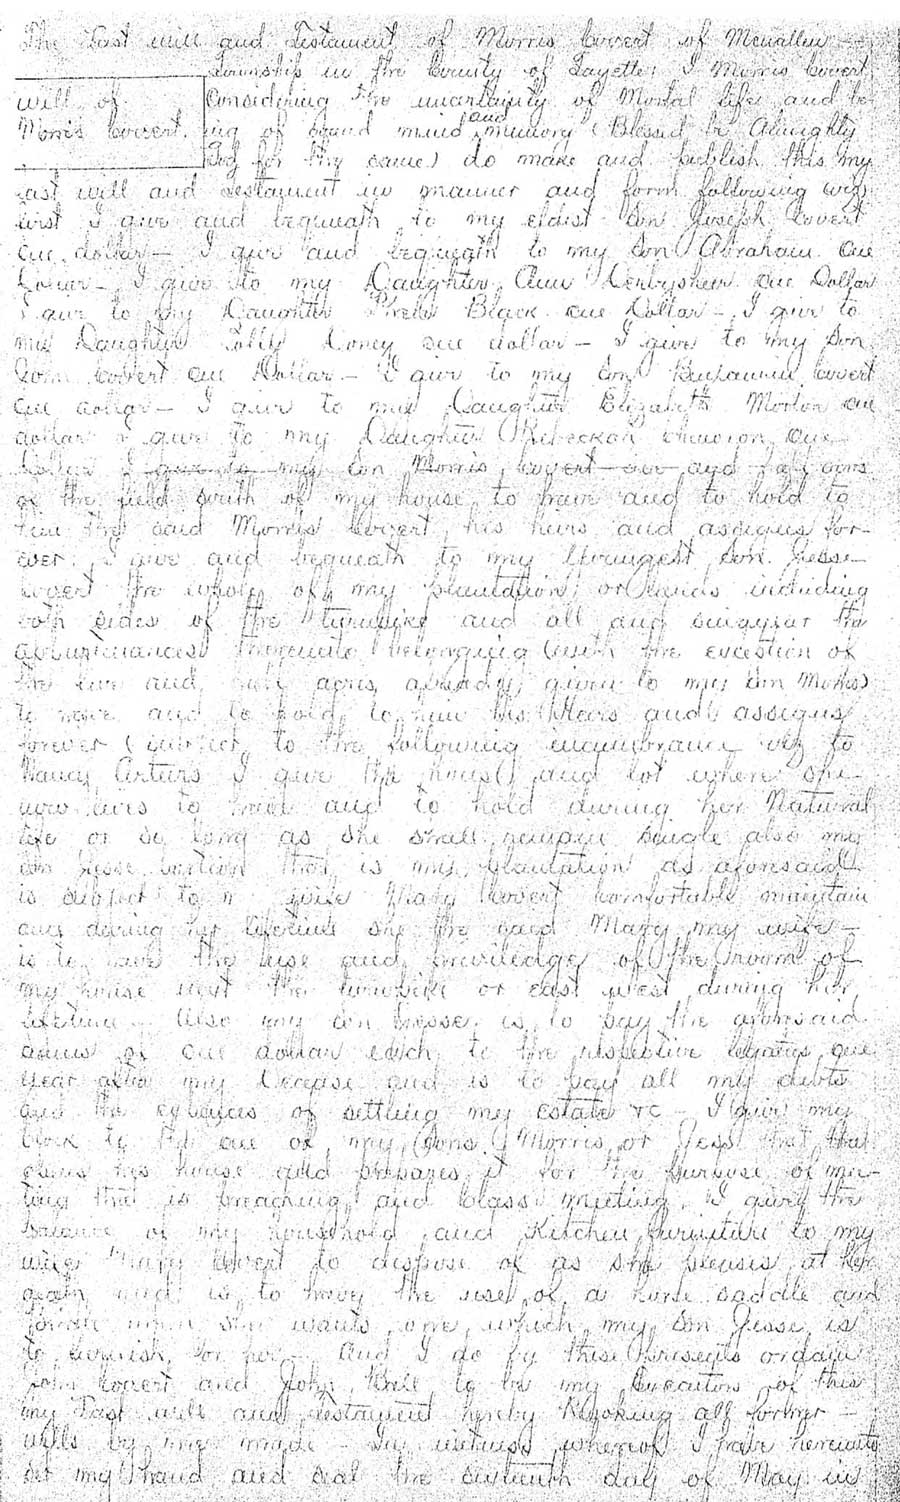 The Last will and Testament of Morris Covert of Menallen
Township in the County of Fayette; I Morris Covert
will of
Morris Covert.
Considering the uncertainty of Mortal life and be-
ing of sound mind and memory (Blessed be Almighty
God for thy same) do make and publish this my
Last will and Testament in manner and form following viz
first I give and bequeath to my eldest Son Joseph Covert
one dollar - I give and bequeath to my Son Abraham one
Dollar - I give to my Daughter Ann one Dollar
I give to my Daughter Black one Dollar - I give to
my Daughter Polly one dollar - I give to my Son
John Covert one Dollar - I give to my Son Benjamin Covert
one dollar - I give to my Daughter Elizabeth Morton one
dollar I give to my Daughter Rebeckah one
Dollar I give to my Son Morris Covert and half acres
of the field south of my house to have and to hold to
him the said Morris Covert his heirs and assigns for-
ever. I give and bequeath to my Youngest Son Jesse
Covert the whole of my plantation or lands including
both sides of the turnpike and all and singular the
appurtinances thereunto belonging (with the exception of
the five and half acres already given to my Son Morris)
to have and to hold to him his Heirs and assigns
forever (subject to the following incumbrance viz to
Nancy Arturs I give the house and lot where she
now lives to have and to hold during her Natural
life or so long as she shall remain single also my
Son Jesse portion that is my plantation as aforesaid
is subject to my wife Mary Covert comfortable maintain
ance during her lifetime she the said Mary my wife -
is to have the use and priviledge of the room of
my house next the turnpike or east west during her
lifetime - Also my Son Jesse is to pay the aforesaid
sums of one dollar each to the respective legatees one
year after my Decease and is to pay all my debts
and the expences of settling my Estate &c - I give my
clock to the one of my Sons Morris or Jess that that
opens his house and prepares it for the purpose of mee-
ting that is preaching and Class meeting. I give the
balance of my household and Kitchen furniture to my
wife Mary Covert to dispose of as she pleases at her
death and is to have the use of a horse saddle and
bridle when she wants one which my Son Jesse is
to furnish for her - And I do by these presents ordain
John Covert and John to be my Executors of this
my Last will and Testament hereby Revoking all former -
wills by me made - In witness whereof I have hereunto
set my hand and seal the sixteenth day of May in